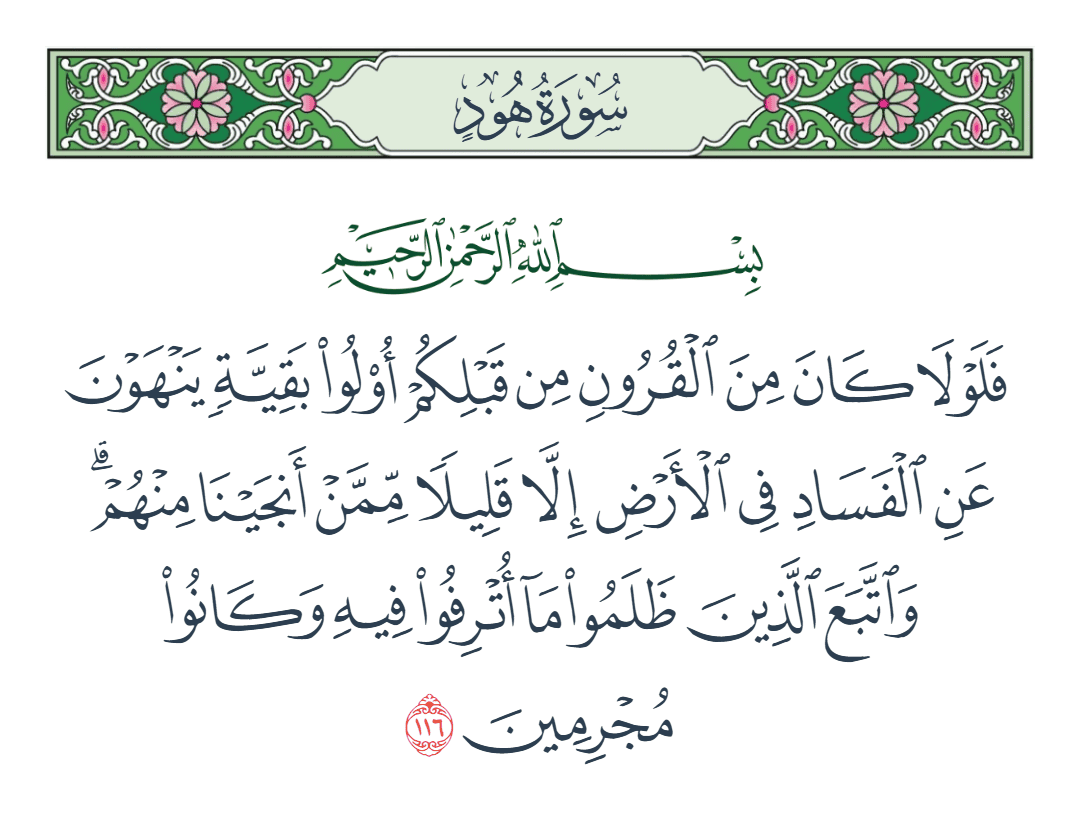 سُورَةُ هُودٍ
بِسْمِ ٱللَّهِ ٱلرَّحْمَٰنِ ٱلرَّحِيمِ
فَلَوْلَا كَانَ مِنَ ٱلْقُرُونِ مِن قَبْلِكُمْ أُو۟لُوا۟ بَقِيَّةٍ يَنْهَوْنَ
عَنِ ٱلْفَسَادِ فِى ٱلْأَرْضِ إِلَّا قَلِيلًا مِّمَّنْ أَنجَيْنَا مِنْهُمْ ۗ
وَٱتَّبَعَ ٱلَّذِينَ ظَلَمُوا۟ مَآ أُتْرِفُوا۟ فِيهِ وَكَانُوا۟
مُجْرِمِينَ ١١٦